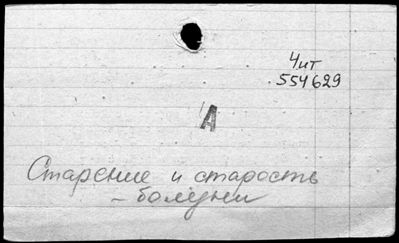 Чит
554629
А
Старение и старость
- болезни